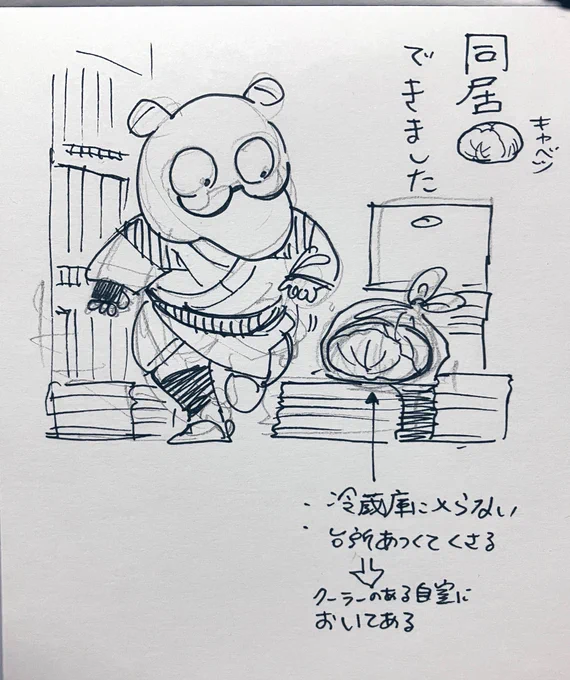 同居
キャベツ
できました
・冷蔵庫に入らない
・台所あつくてくさる
クーラーのある自室に
おいてある